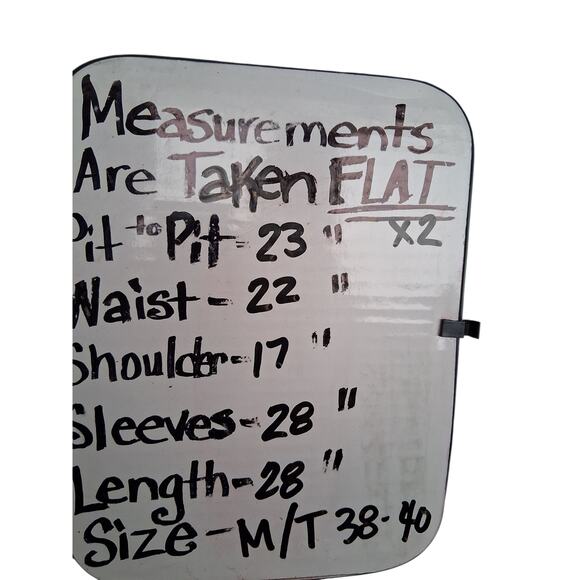 Measurements
Are Taken FLAT
x2
Pit to Pit - 23 "
Waist - 22 "
Shoulder - 17 "
Sleeves - 28 "
Length - 28 "
Size - M/T 38-40